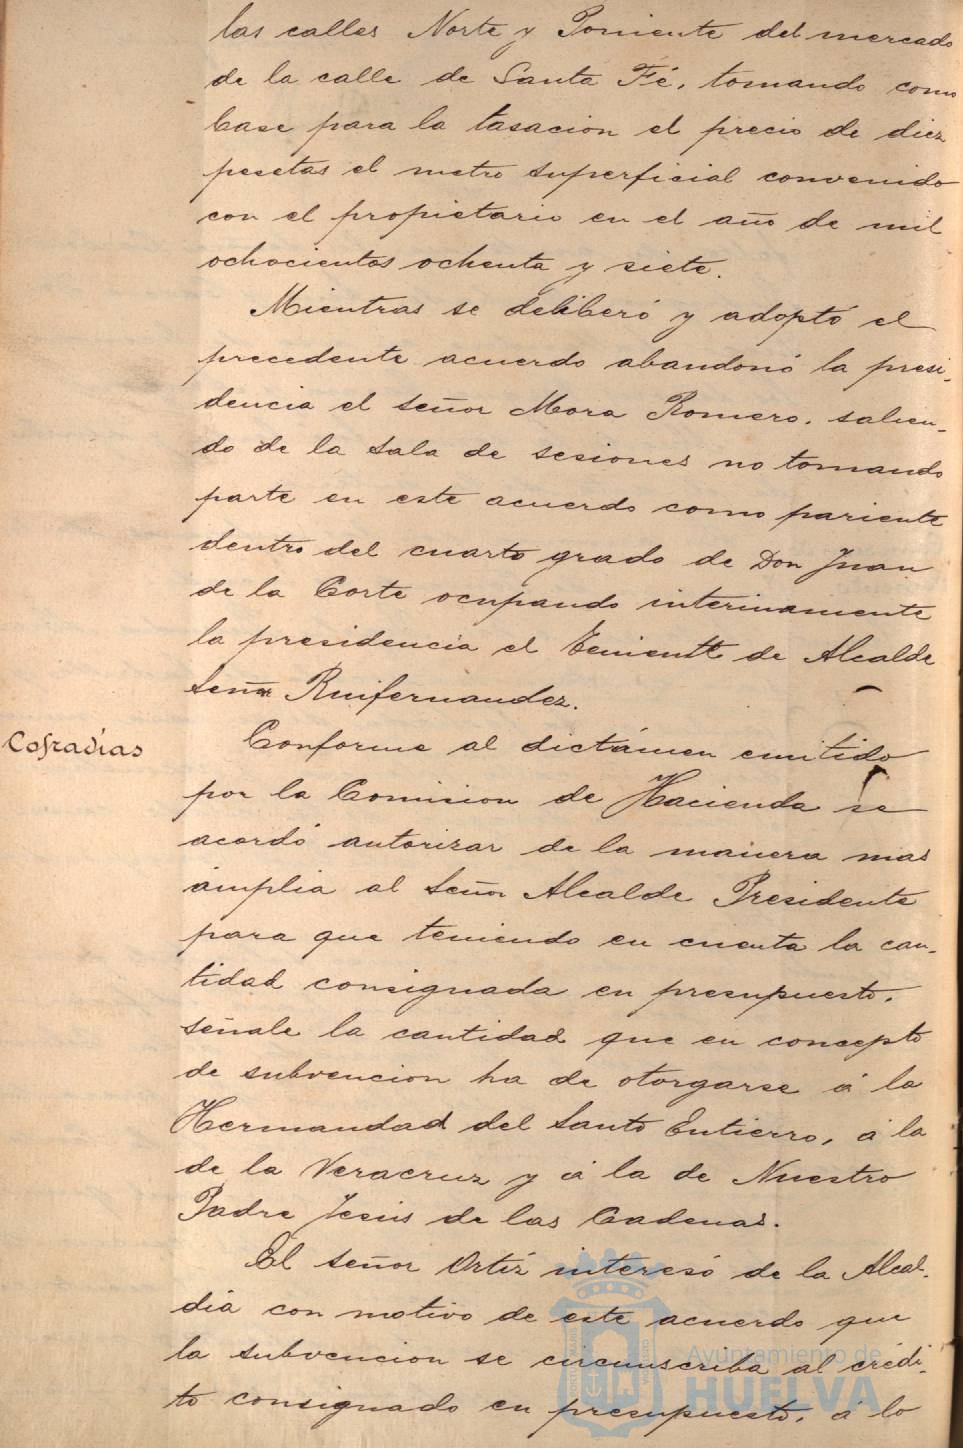 las calles Norte y Poniente del mercado
de la calle de Santa Fé, tomando como
base para la tasacion el precio de diez
pesetas el metro superficial convenido
con el propietario en el año de mil
ochocientos ochenta y siete.
Mientras se deliberó y adoptó el
precedente acuerdo abandonó la presi-
dencia el señor Mora Romero, salien-
do de la sala de sesiones no tomando
parte en este acuerdo como pariente
dentro del cuarto grado de Don Juan
de la Corte ocupando interinamente
la presidencia el Teniente de Alcalde
señor Ruifernandez.
Cofradias
Conforme al dictámen emitido
por la Comision de Hacienda se
acordó autorizar de la manera mas
ámplia al Señor Alcalde Presidente
para que teniendo en cuenta la can-
tidad consignada en presupuesto,
señale la cantidad que en concepto
de subvencion ha de otorgarse á la
Hermandad del Santo Entierro, á la
de la Veracruz y á la de Nuestro
Padre Jesús de las Cadenas.
El señor Ortiz interesó de la Alcal-
dia con motivo de este acuerdo que
la subvencion se circunscriba al crédi-
to consignado en presupuesto, á lo
Ayuntamiento de
HUELVA